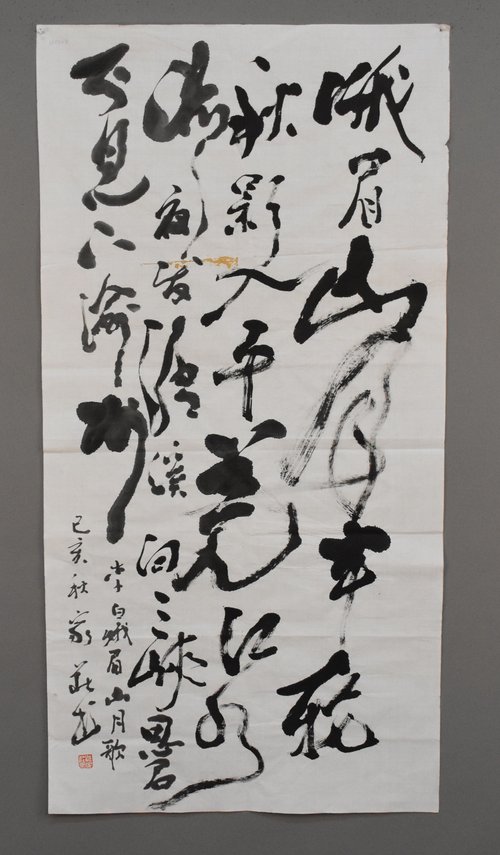 峨眉山月半輪
秋影入平羌江水
流夜發清溪向三峽思君
不見下渝州
李白峨眉山月歌
己亥秋